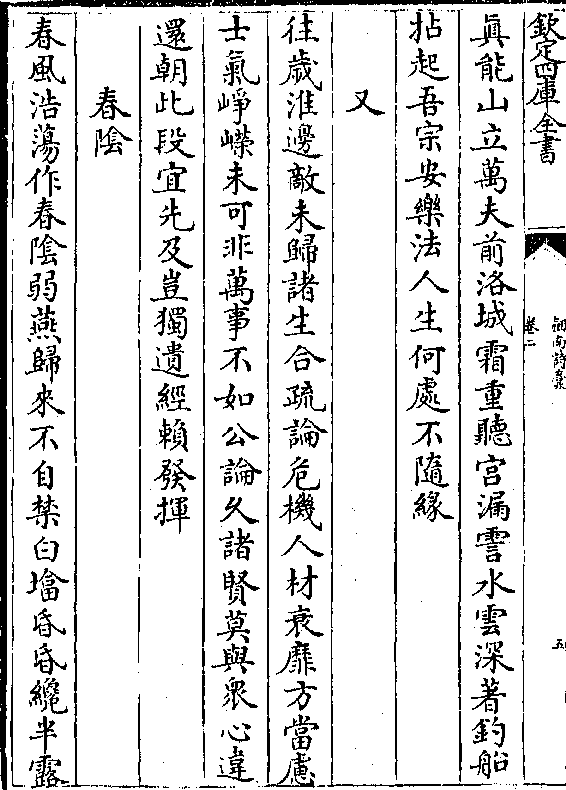 欽定四庫全書
卷二
五
眞能山立萬夫前洛城霜重聽宫漏霅水雲深著釣船
拈起吾宗安樂法人生何處不隨緣
又
往歲淮邊敵未歸諸生合疏論危機人材衰靡方當慮
士氣崢嶸未可非萬事不如公論久諸賢莫與衆心違
還朝此段宜先及豈獨遺經賴發揮
春陰
春風浩蕩作春陰弱燕歸來不自禁臼墖昏昏纔半露